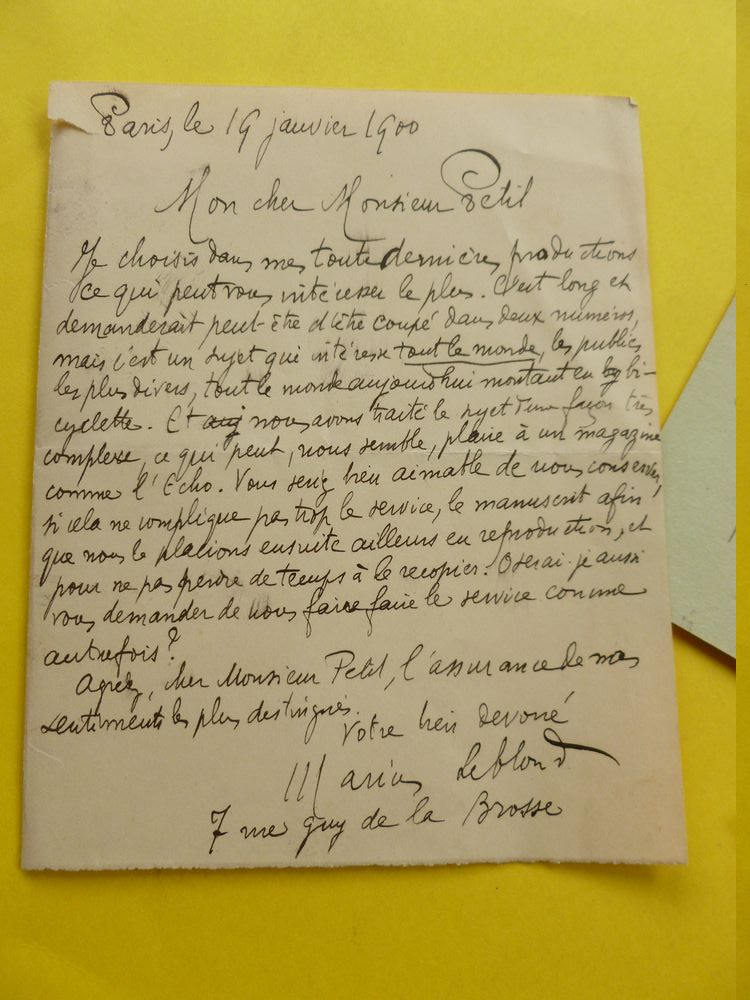 Paris, le 19 janvier 1900
Mon cher Monsieur Petit
Je choisis dans mes toute dernières productions
ce qui peut vous intéresser le plus. C'est long et
demanderait peut-être d'être coupé dans deux numéros,
mais c'est un sujet qui intéresse tout le monde, les publics
les plus divers, tout le monde aujourd'hui montant en bi-
cyclette. Et nous avons traité le sujet d'une façon très
complexe, ce qui peut, nous semble, plaire à un magazine
comme l'Echo. Vous seriez bien aimable de nous conserver,
si cela ne complique pas trop le service, le manuscrit afin
que nous le placions ensuite ailleurs en reproduction, et
pour ne pas perdre de temps à le recopier. Oserai-je aussi
vous demander de nous faire faire le service comme
autrefois?
Agréez, cher Monsieur Petit, l'assurance de mes
sentiments les plus distingués.
Votre bien dévoué
Marius Leblond
7 rue guy de la Brosse